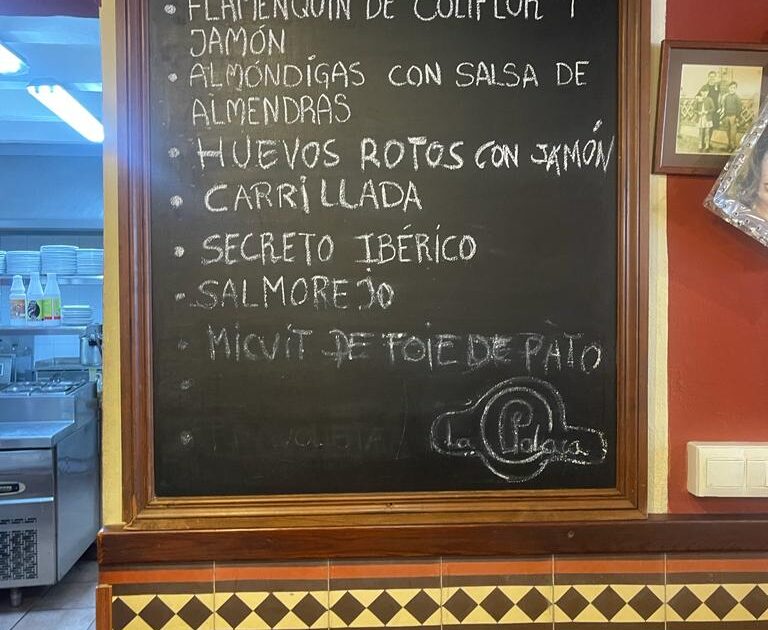 • FLAMENQUÍN DE COLIFLOR Y
JAMÓN
• ALMÓNDIGAS CON SALSA DE
ALMENDRAS
• HUEVOS ROTOS CON JAMÓN
• CARRILLADA
• SECRETO IBÉRICO
• SALMOREJO
• MICUIT DE FOIE DE PATO
La Palara